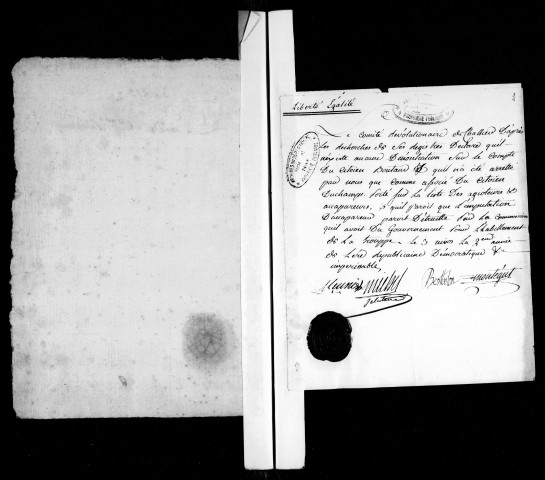 2
Liberté Égalité
Le Comité Revolutionaire de Challier D'après
les recherches de ses registres Declare quil
n'existe aucune Denontiation sur le Compte
Du Citoien Boutaud & quil n'a été arretté
par nous que comme associé Du Citoien
Duchamps porté sur la liste Des agioteurs &
accapareurs, & quil paroit que l'imputation
D'accapareur paroit Détruitte par la Commission
quil avoit Du Gouvernement pour l'habillement
de la trouppe le 3 nivos la 2eme année
de l'ere Republicaine Democratique &
imperissable